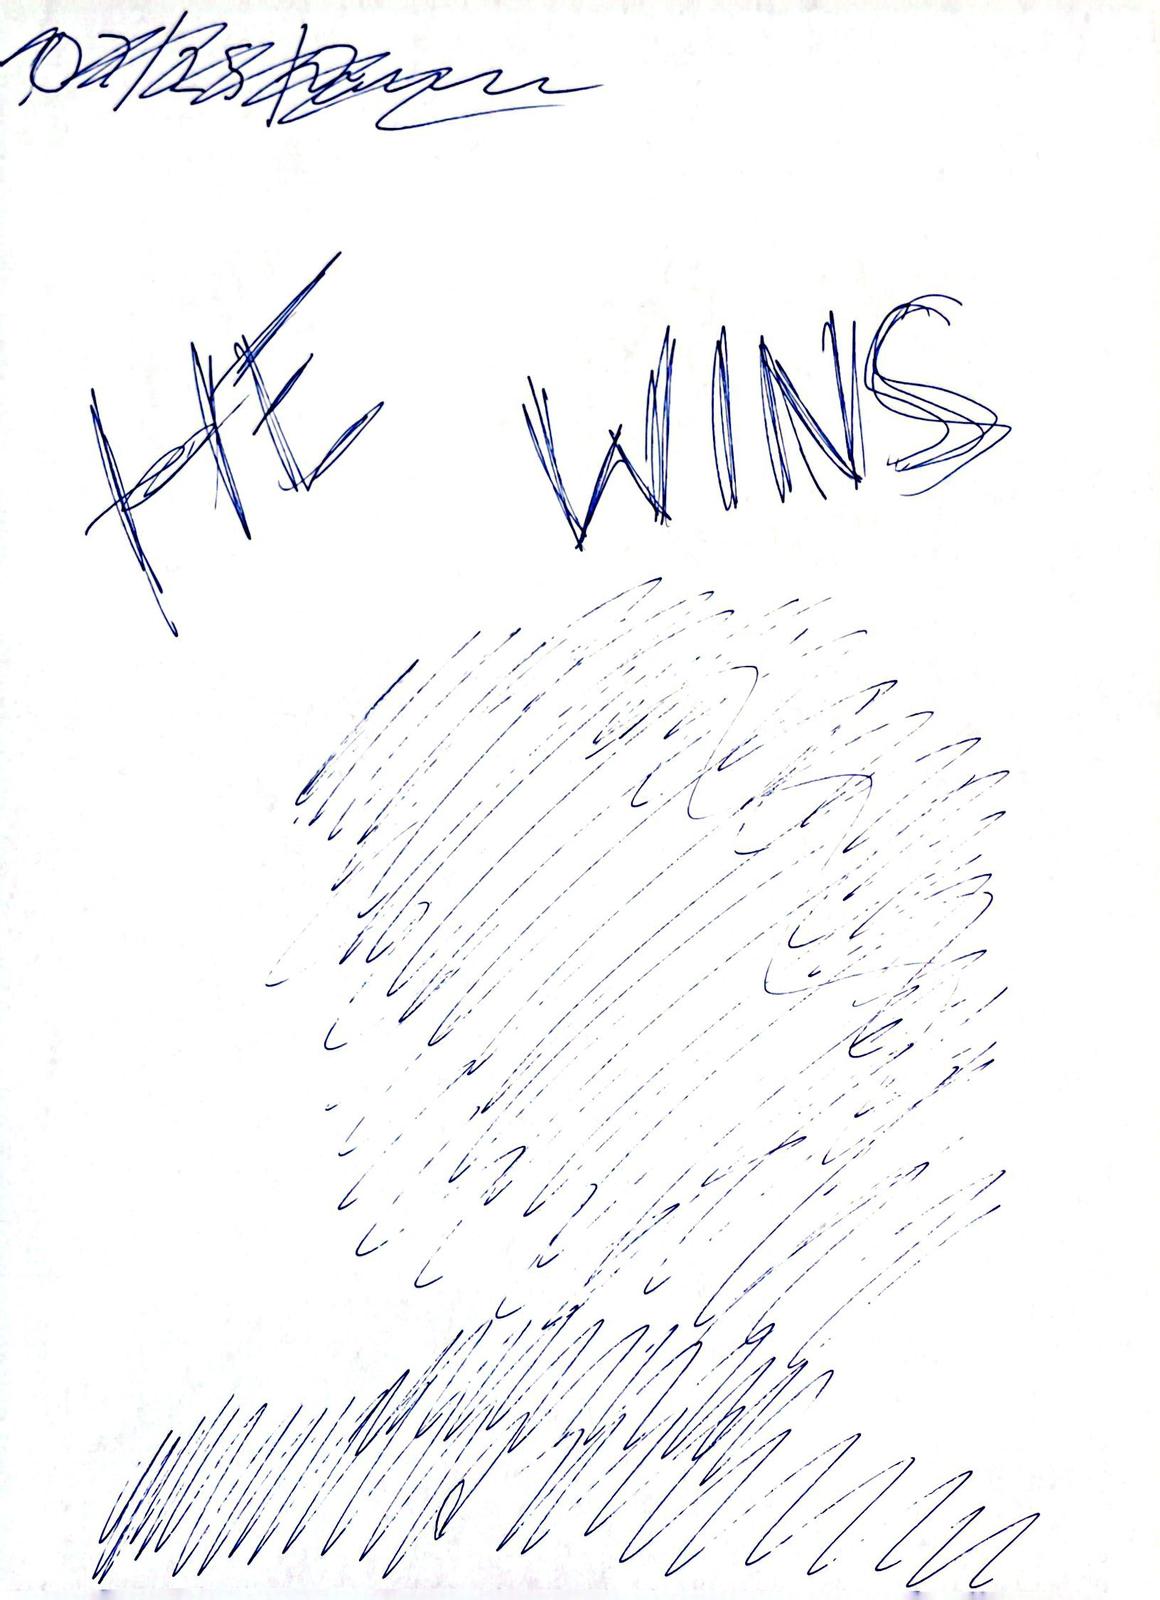 HE WINS